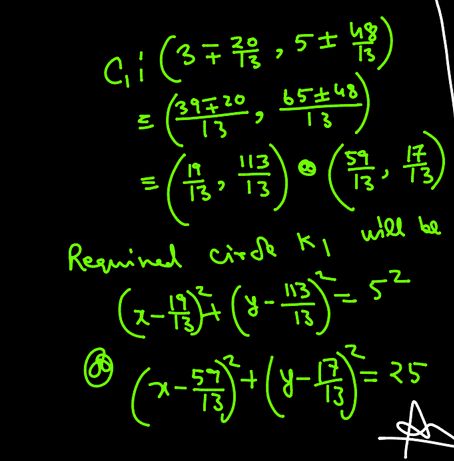 C₁ : (3 ∓ 20/13 , 5 ± 48/13)
≡ (39∓20/13 , 65±48/13)
≡ (19/13 , 113/13) (59/13 , 17/13)
Required circle K₁ will be
(x - 19/13)² + (y - 113/13)² = 5²
(x - 59/13)² + (y - 17/13)² = 25